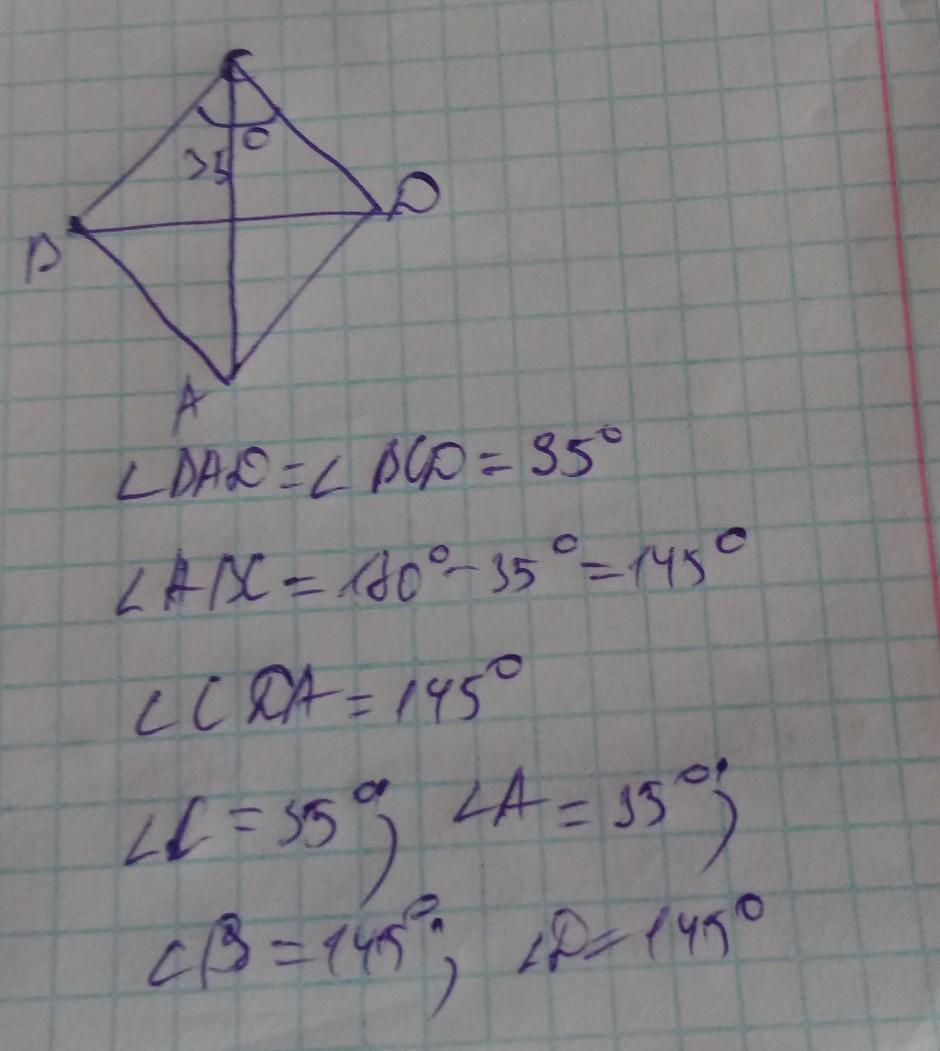 C
35°
B
D
A
∠BAD = ∠BCD = 35°
∠ABC = 180° - 35° = 145°
∠CDA = 145°
∠C = 35°; ∠A = 35°;
∠B = 145°; ∠D = 145°